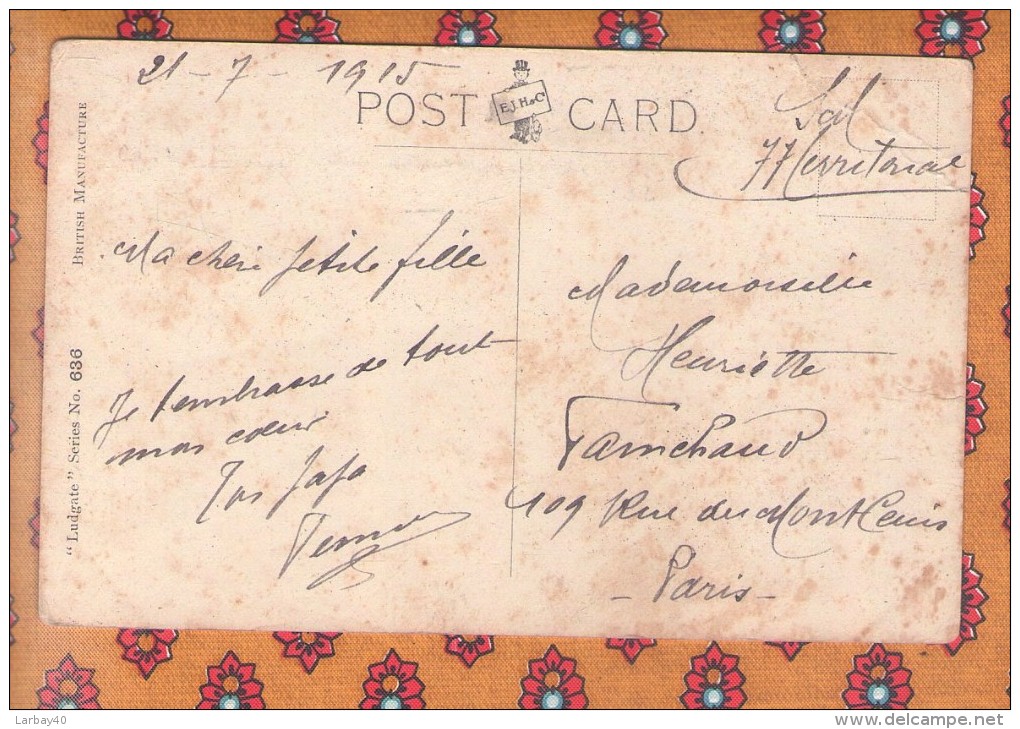 21 - 7 - 1915
POST CARD
E.J.H & Co
77 Territorial
BRITISH MANUFACTURE
"Ludgate" Series No. 636
Ma chère petite fille
Je t'embrasse de tout
mon coeur
Ton papa
Mademoiselle
Henriette
109 Rue du Mont Cenis
- Paris -
Larbay40
www.delcampe.net